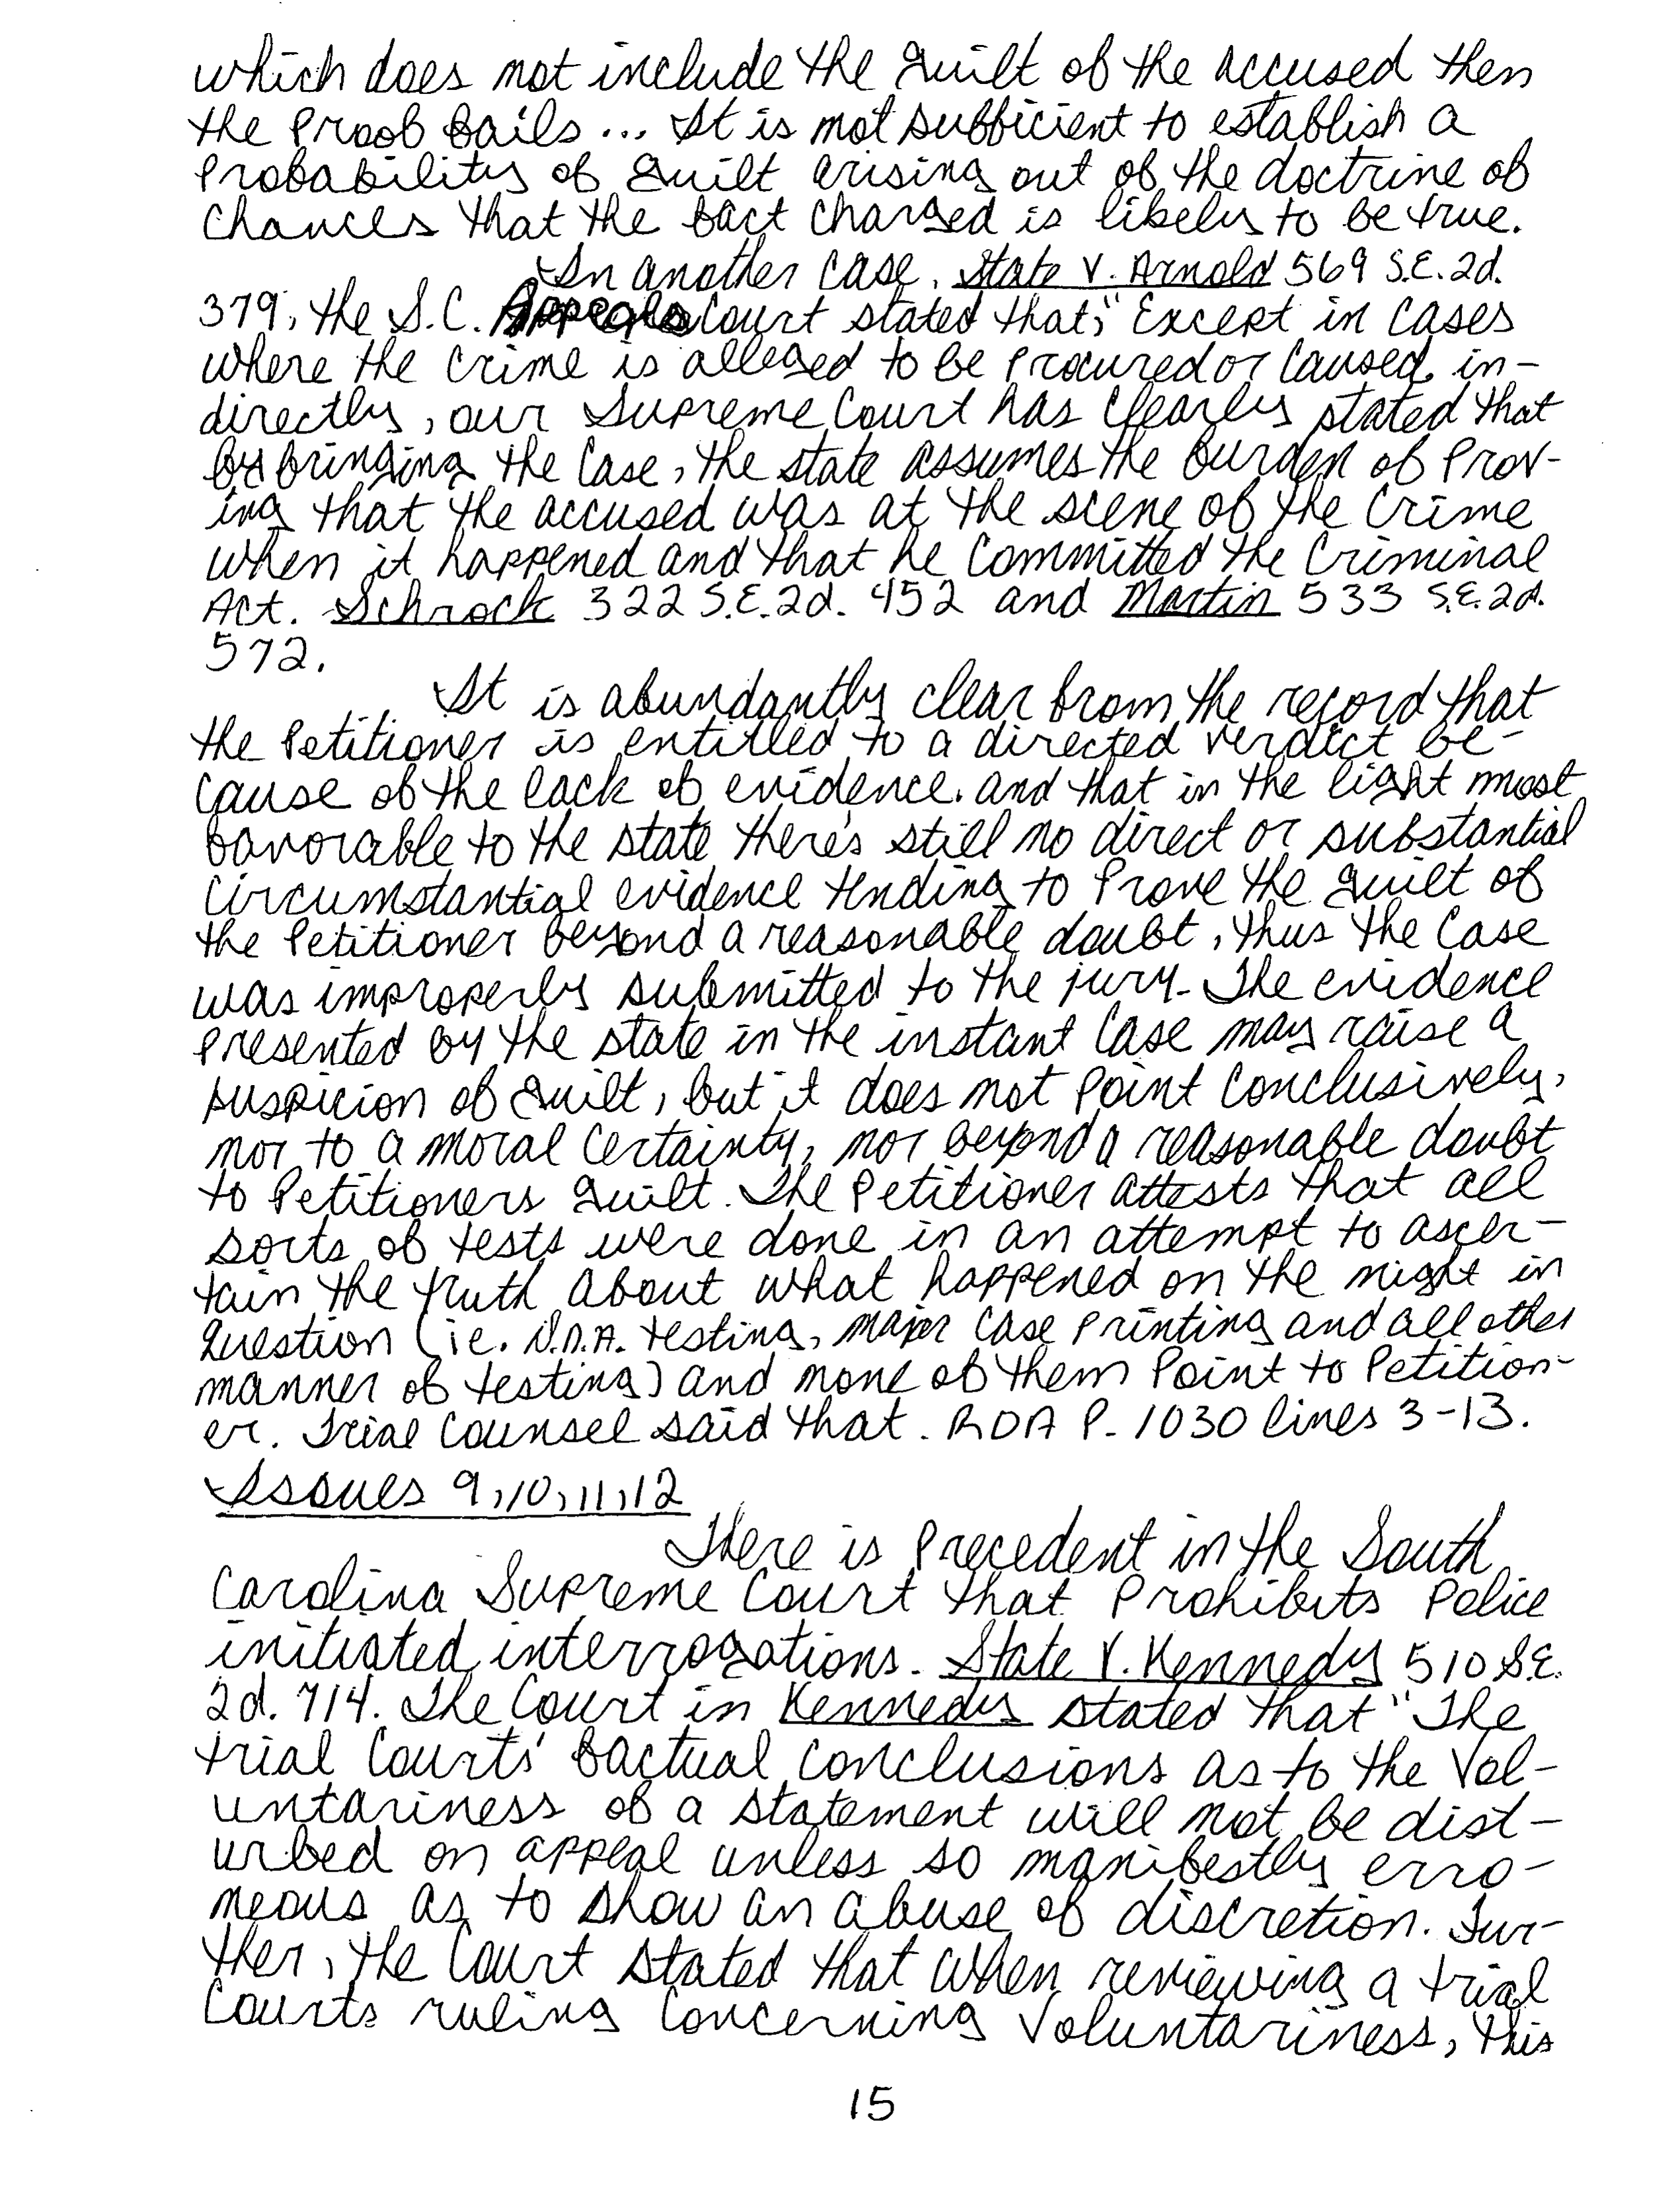 which does not include the guilt of the accused then
the proof fails... It is not sufficient to establish a
probability of guilt arising out of the doctrine of
chances that the fact charged is likely to be true.
In another case, State V. Arnold 569 S.E. 2d.
379, the S.C. Appeals Court stated that, "Except in cases
where the crime is alleged to be procured or caused in-
directly, our Supreme Court has clearly stated that
by bringing the case, the state assumes the burden of prov-
ing that the accused was at the scene of the crime
when it happened and that he committed the criminal
Act. Schrock 322 S.E. 2d. 452 and Martin 533 S.E. 2d.
572.
It is abundantly clear from the record that
the Petitioner is entitled to a directed verdict be-
cause of the lack of evidence. and that in the light most
favorable to the state there's still no direct or substantial
circumstantial evidence tending to prove the guilt of
the Petitioner beyond a reasonable doubt, thus the case
was improperly submitted to the jury. The evidence
presented by the state in the instant case may raise a
suspicion of guilt, but it does not point conclusively,
nor to a moral certainty, nor beyond a reasonable doubt
to Petitioners guilt. The Petitioner attests that all
sorts of tests were done in an attempt to ascer-
tain the truth about what happened on the night in
question (ie. D.N.A. testing, major case printing and all other
manner of testing) and none of them point to Petition-
er. Trial Counsel said that. ROA P. 1030 lines 3-13.
Issues 9,10,11,12
There is precedent in the South
Carolina Supreme Court that prohibits police
initiated interrogations. State V. Kennedy 510 S.E.
2d. 714. The Court in Kennedy stated that "The
trial courts' factual conclusions as to the vol-
untariness of a statement will not be dist-
urbed on appeal unless so manifestly erro-
neous as to show an abuse of discretion. Fur-
ther, the Court stated that when reviewing a trial
courts ruling concerning voluntariness, this
15